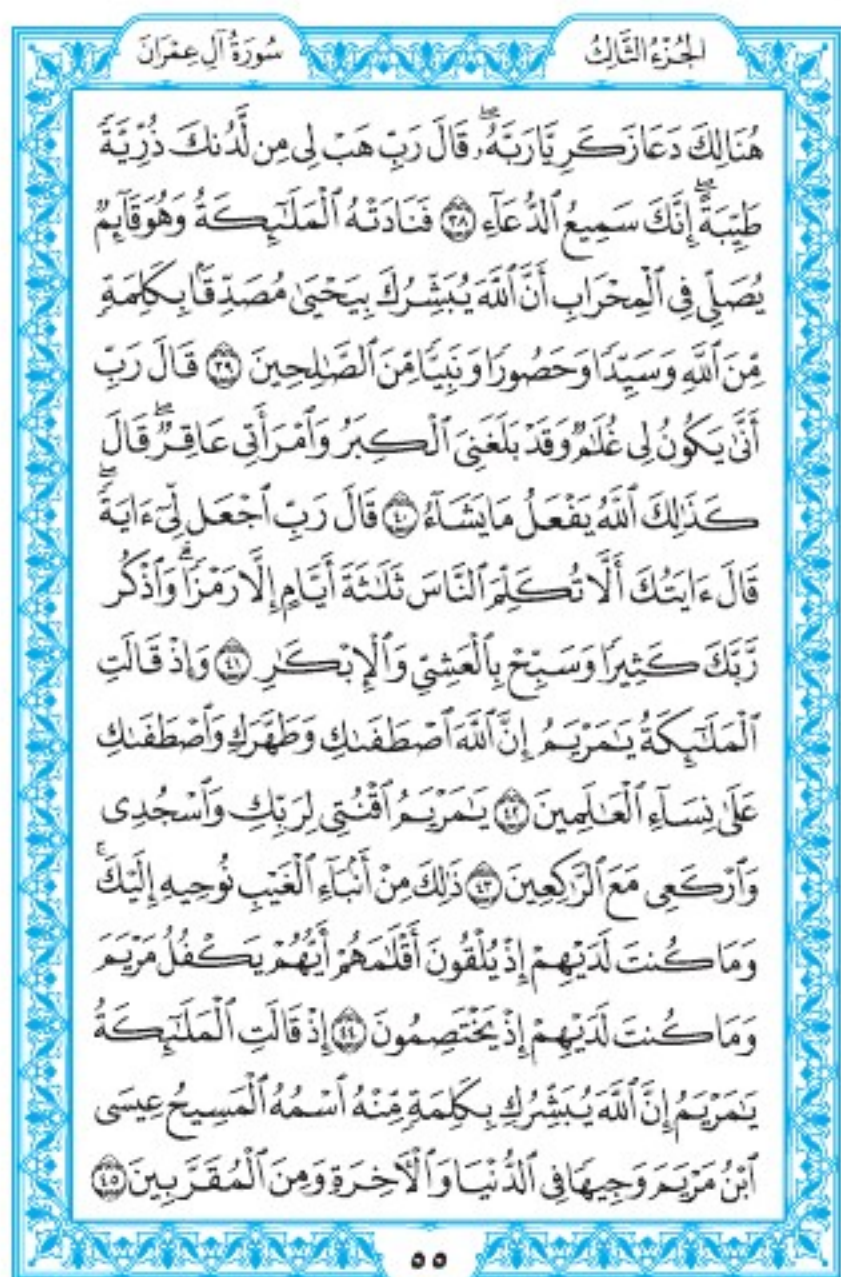 سُورَةُ آلِ عِمْرَانَ
الجُزْءُ الثَّالِثُ
هُنَالِكَ دَعَا زَكَرِيَّا رَبَّهُۥۖ قَالَ رَبِّ هَبْ لِى مِن لَّدُنكَ ذُرِّيَّةً
طَيِّبَةًۖ إِنَّكَ سَمِيعُ ٱلدُّعَآءِ ۝٣٨ فَنَادَتْهُ ٱلْمَلَـٰٓئِكَةُ وَهُوَ قَآئِمٌ
يُصَلِّى فِى ٱلْمِحْرَابِ أَنَّ ٱللَّهَ يُبَشِّرُكَ بِيَحْيَىٰ مُصَدِّقًۢا بِكَلِمَةٍ
مِّنَ ٱللَّهِ وَسَيِّدًا وَحَصُورًا وَنَبِيًّا مِّنَ ٱلصَّـٰلِحِينَ ۝٣٩ قَالَ رَبِّ
أَنَّىٰ يَكُونُ لِى غُلَـٰمٌ وَقَدْ بَلَغَنِىَ ٱلْكِبَرُ وَٱمْرَأَتِى عَاقِرٌۖ قَالَ
كَذَٰلِكَ ٱللَّهُ يَفْعَلُ مَا يَشَآءُ ۝٤٠ قَالَ رَبِّ ٱجْعَل لِّىٓ ءَايَةًۖ
قَالَ ءَايَتُكَ أَلَّا تُكَلِّمَ ٱلنَّاسَ ثَلَـٰثَةَ أَيَّامٍ إِلَّا رَمْزًاۗ وَٱذْكُر
رَّبَّكَ كَثِيرًا وَسَبِّحْ بِٱلْعَشِىِّ وَٱلْإِبْكَـٰرِ ۝٤١ وَإِذْ قَالَتِ
ٱلْمَلَـٰٓئِكَةُ يَـٰمَرْيَمُ إِنَّ ٱللَّهَ ٱصْطَفَىٰكِ وَطَهَّرَكِ وَٱصْطَفَىٰكِ
عَلَىٰ نِسَآءِ ٱلْعَـٰلَمِينَ ۝٤٢ يَـٰمَرْيَمُ ٱقْنُتِى لِرَبِّكِ وَٱسْجُدِى
وَٱرْكَعِى مَعَ ٱلرَّٰكِعِينَ ۝٤٣ ذَٰلِكَ مِنْ أَنۢبَآءِ ٱلْغَيْبِ نُوحِيهِ إِلَيْكَۚ
وَمَا كُنتَ لَدَيْهِمْ إِذْ يُلْقُونَ أَقْلَـٰمَهُمْ أَيُّهُمْ يَكْفُلُ مَرْيَمَ
وَمَا كُنتَ لَدَيْهِمْ إِذْ يَخْتَصِمُونَ ۝٤٤ إِذْ قَالَتِ ٱلْمَلَـٰٓئِكَةُ
يَـٰمَرْيَمُ إِنَّ ٱللَّهَ يُبَشِّرُكِ بِكَلِمَةٍ مِّنْهُ ٱسْمُهُ ٱلْمَسِيحُ عِيسَى
ٱبْنُ مَرْيَمَ وَجِيهًا فِى ٱلدُّنْيَا وَٱلْـَٔاخِرَةِ وَمِنَ ٱلْمُقَرَّبِينَ ۝٤٥
٥٥